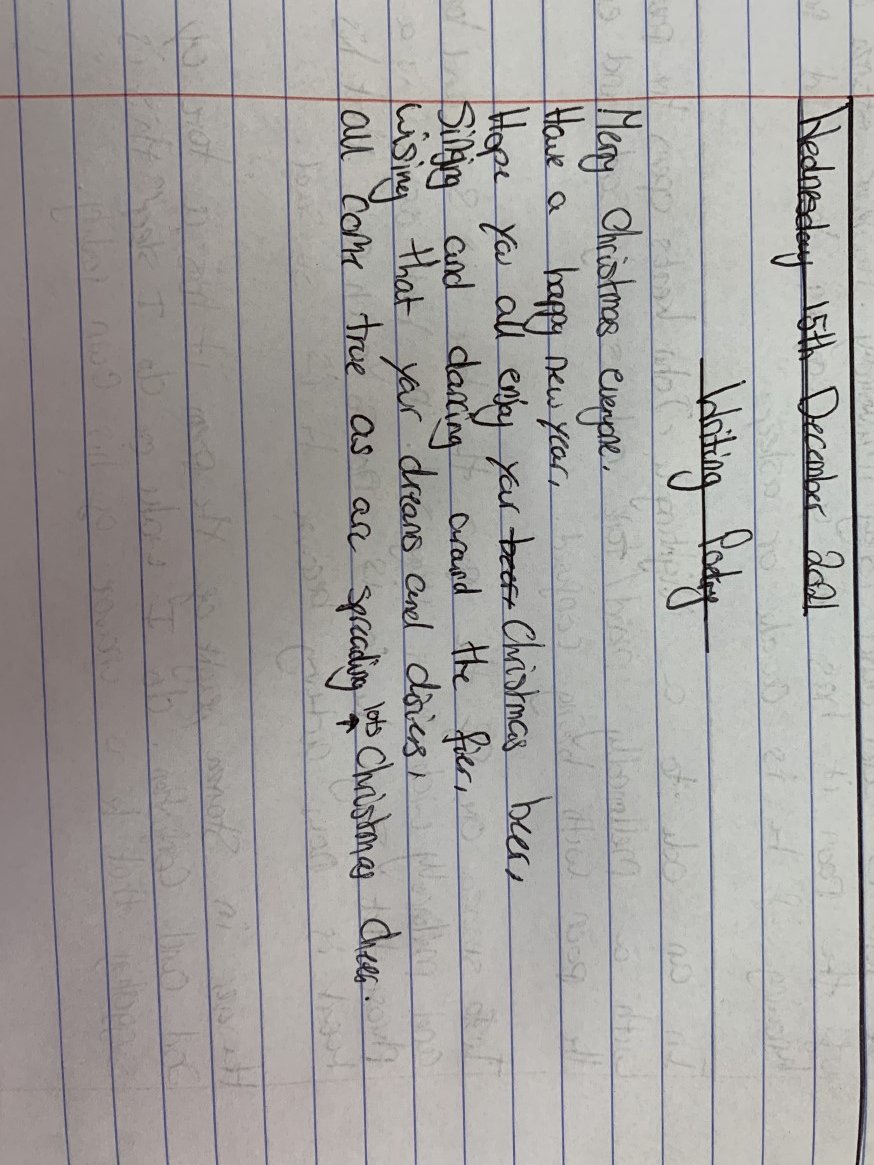 Wednesday 15th December 2021
Writing Poetry
Merry Christmas everyone,
Have a happy new year,
Hope you all enjoy your beer, Christmas beer,
Singing and dancing around the fier,
wising that your dreams and disiers,
all come true as are spreading lots Christmas cheer.